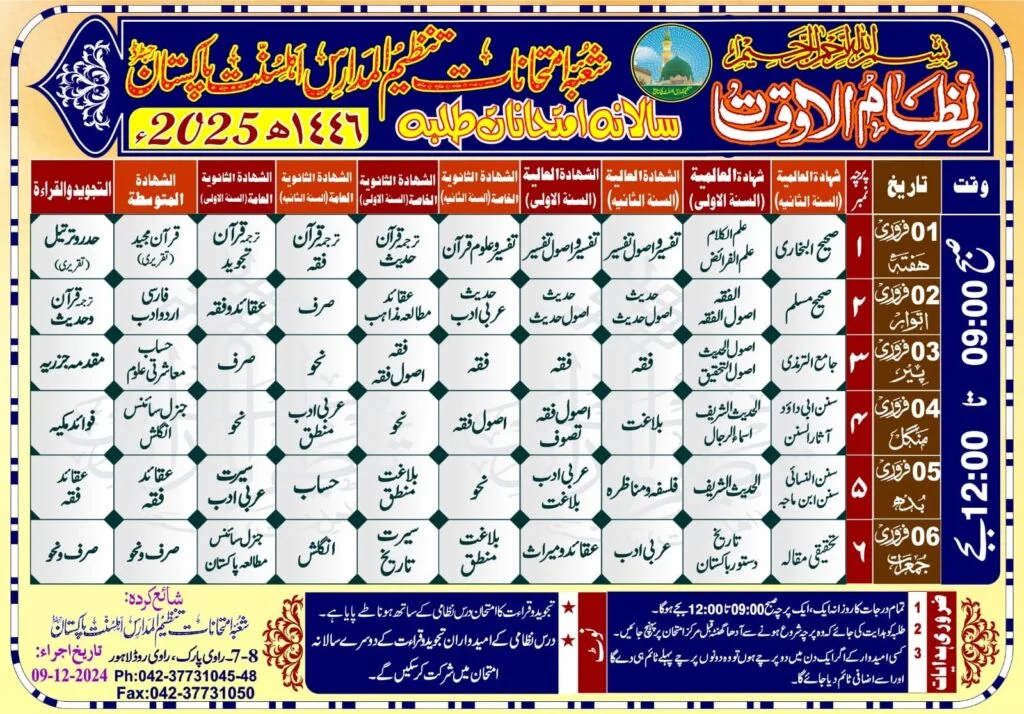 بسم اللہ الرحمن الرحیم
نظام الاوقات
شعبۂ امتحانات تنظیم المدارس اہلسنت پاکستان
سالانہ امتحانات طلبہ
۱۴۴۶ھ 2025ء
وقت
تاریخ
پرچہ نمبر
شہادۃ العالمیۃ (السنۃ الثانیۃ)
شہادۃ العالمیۃ (السنۃ الاولیٰ)
الشھادۃ العالیۃ (السنۃ الثانیۃ)
الشھادۃ العالیۃ (السنۃ الاولیٰ)
الشھادۃ الثانویۃ الخاصۃ (السنۃ الثانیۃ)
الشھادۃ الثانویۃ الخاصۃ (السنۃ الاولیٰ)
الشھادۃ الثانویۃ العامۃ (السنۃ الثانیۃ)
الشھادۃ الثانویۃ العامۃ (السنۃ الاولیٰ)
الشھادۃ المتوسطۃ
التجوید والقراءۃ
صبح 09:00 تا 12:00 بجے
01 فروری ہفتہ ۱ صحیح البخاری علم الکلام علم الفرائض تفسیر واصول تفسیر تفسیر واصول تفسیر تفسیر وعلوم قرآن ترجمہ قرآن حدیث ترجمہ قرآن فقہ ترجمہ قرآن تجوید قرآن مجید (تقریری) حدر وترتیل (تقریری)
02 فروری اتوار ۲ صحیح مسلم الفقہ اصول الفقہ حدیث اصول حدیث حدیث اصول حدیث حدیث عربی ادب عقائد مطالعہ مذاہب صرف عقائد وفقہ فارسی اردو ادب ترجمہ قرآن وحدیث
03 فروری پیر ۳ جامع الترمذی اصول الحدیث اصول التحقیق فقہ فقہ فقہ فقہ اصول فقہ نحو صرف حساب معاشرتی علوم مقدمہ جزریہ
04 فروری منگل ۴ سنن ابی داؤد آثار السنن الحدیث الشریف اسماء الرجال بلاغت اصول فقہ تصوف اصول فقہ نحو عربی ادب منطق نحو جنرل سائنس انگلش فوائد مکیہ
05 فروری بدھ ۵ سنن النسائی سنن ابن ماجہ الحدیث الشریف فلسفہ ومناظرہ عربی ادب بلاغت نحو بلاغت منطق حساب سیرت عربی ادب عقائد فقہ عقائد فقہ
06 فروری جمعرات ۶ تحقیقی مقالہ تاریخ دستور پاکستان عربی ادب عقائد ومیراث بلاغت منطق سیرت تاریخ انگلش جنرل سائنس مطالعہ پاکستان صرف ونحو صرف ونحو
ضروری ہدایات
1 تمام درجات کا روزانہ ایک، ایک پرچہ صبح 09:00 تا 12:00 بجے ہوگا۔
2 طلبہ کو ہدایت کی جائے کہ وہ پرچہ شروع ہونے سے آدھا گھنٹہ قبل مرکز امتحان پر پہنچ جائیں۔
3 کسی امیدوار کے اگر ایک دن میں دو پرچے ہوں تو وہ دونوں پرچے پہلے ٹائم ہی دے گا
اور اسے اضافی ٹائم دیا جائے گا۔
نوٹ
★ تجوید وقراءت کا امتحان درس نظامی کے ساتھ ہونا طے پایا ہے۔
★ درس نظامی کے امیدواران تجوید وقراءت کے دوسرے سالانہ
امتحان میں شرکت کرسکیں گے۔
شائع کردہ:
شعبۂ امتحانات تنظیم المدارس اہلسنت پاکستان
7-8 راوی پارک، راوی روڈ لاہور
تاریخ اجراء:
09-12-2024
Ph:042-37731045-48
Fax:042-37731050